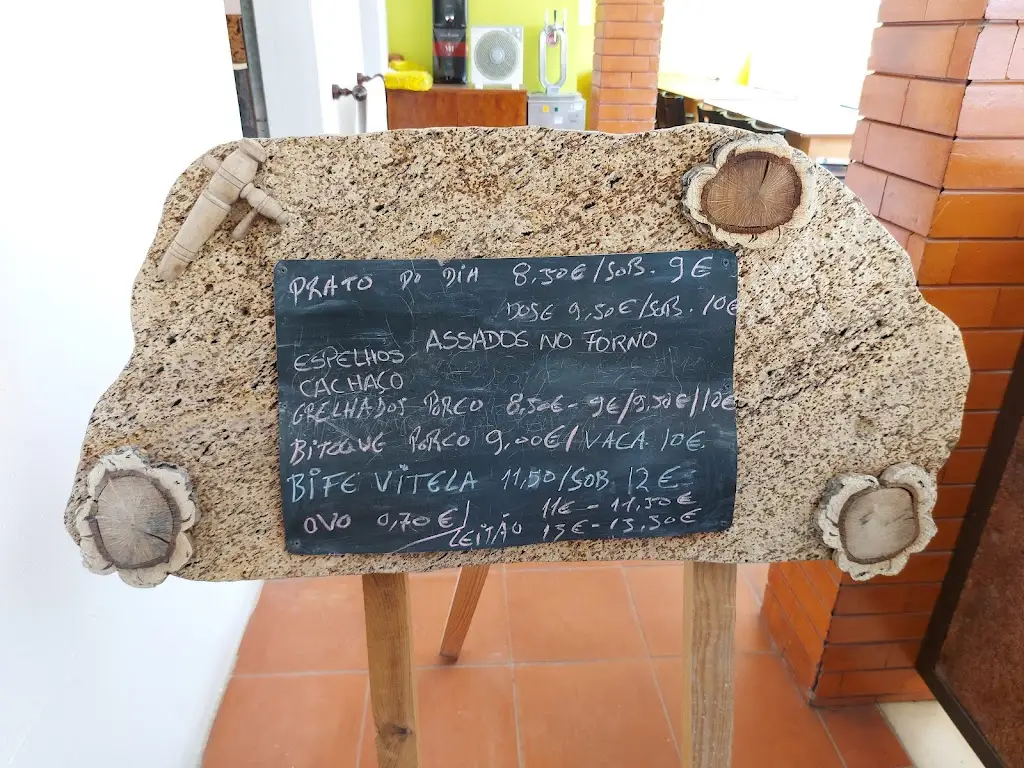 PRATO DO DIA 8,50€/SOB. 9€
DOSE 9,50€/SOB. 10€
ASSADOS NO FORNO
ESPELHOS
CACHAÇO
GRELHADOS PORCO 8,50€ - 9€/9,50€/10€
BITOQUE PORCO 9,00€/VACA 10€
BIFE VITELA 11,50/SOB. 12€
OVO 0,70€/
LEITÃO 11€ - 11,50€
13€ - 13,50€